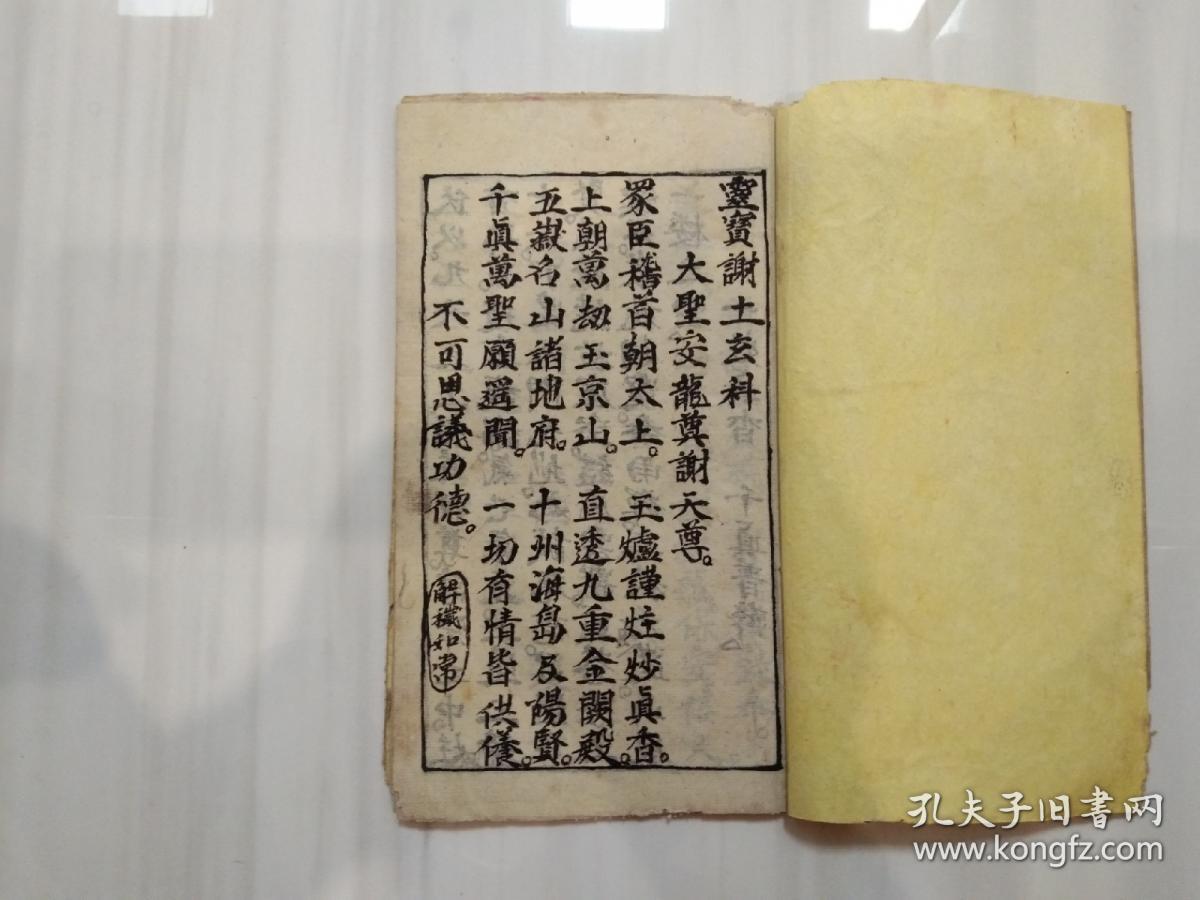 靈寶謝土玄科
大聖安龍奠謝天尊。
眾臣稽首朝太上。玉爐謹炷妙眞香。
上朝萬劫玉京山。直透九重金闕殿。
五嶽名山諸地府。十州海島及陽賢。
千眞萬聖願遥聞。一切有情皆供養。
不可思議功德。
解穢如常
孔夫子旧书网
www.kongfz.com